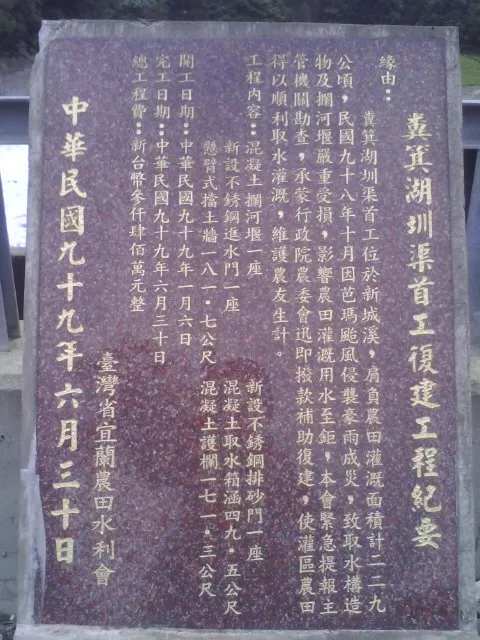 糞箕湖圳渠首工復建工程紀要
緣由：
糞箕湖圳渠首工位於新城溪，肩負農田灌溉面積計二二九
公頃，民國九十八年十月因芭瑪颱風侵襲豪雨成災，致取水構造
物及攔河堰嚴重受損，影響農田灌溉用水至鉅，本會緊急提報主
管機關勘查，承蒙行政院農委會迅即撥款補助復建，使灌區農田
得以順利取水灌溉，維護農友生計。
工程內容：混凝土攔河堰一座　新設不銹鋼排砂門一座
新設不銹鋼進水門一座　混凝土取水箱涵四九．五公尺
懸臂式擋土牆一八一．七公尺　混凝土護欄一七一．三公尺
開工日期：中華民國九十九年一月六日
完工日期：中華民國九十九年六月三十日
總工程費：新台幣參仟肆佰萬元整
臺灣省宜蘭農田水利會
中華民國九十九年六月三十日